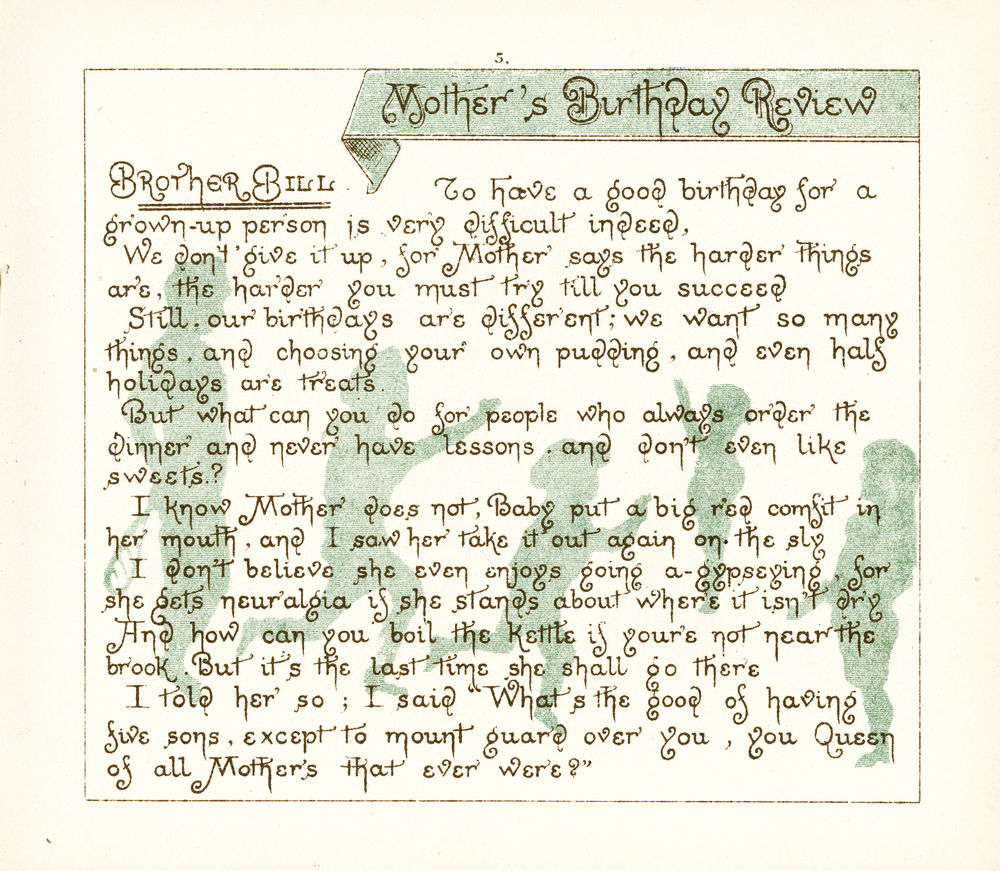 5.
Mother's Birthday Review
BROTHER BILL. To have a good birthday for a
grown-up person is very difficult indeed,
We don't give it up, for Mother says the harder things
are, the harder you must try till you succeed
Still, our birthdays are different; we want so many
things, and choosing your own pudding, and even half
holidays are treats.
But what can you do for people who always order the
dinner and never have lessons, and don't even like
sweets?
I know Mother does not, Baby put a big red comfit in
her mouth, and I saw her take it out again on the sly
I don't believe she even enjoys going a-gypseying, for
she gets neuralgia if she stands about where it isn't dry
And how can you boil the kettle if you're not near the
brook. But it's the last time she shall go there
I told her so; I said "What's the good of having
five sons, except to mount guard over you, you Queen
of all Mothers that ever were?"